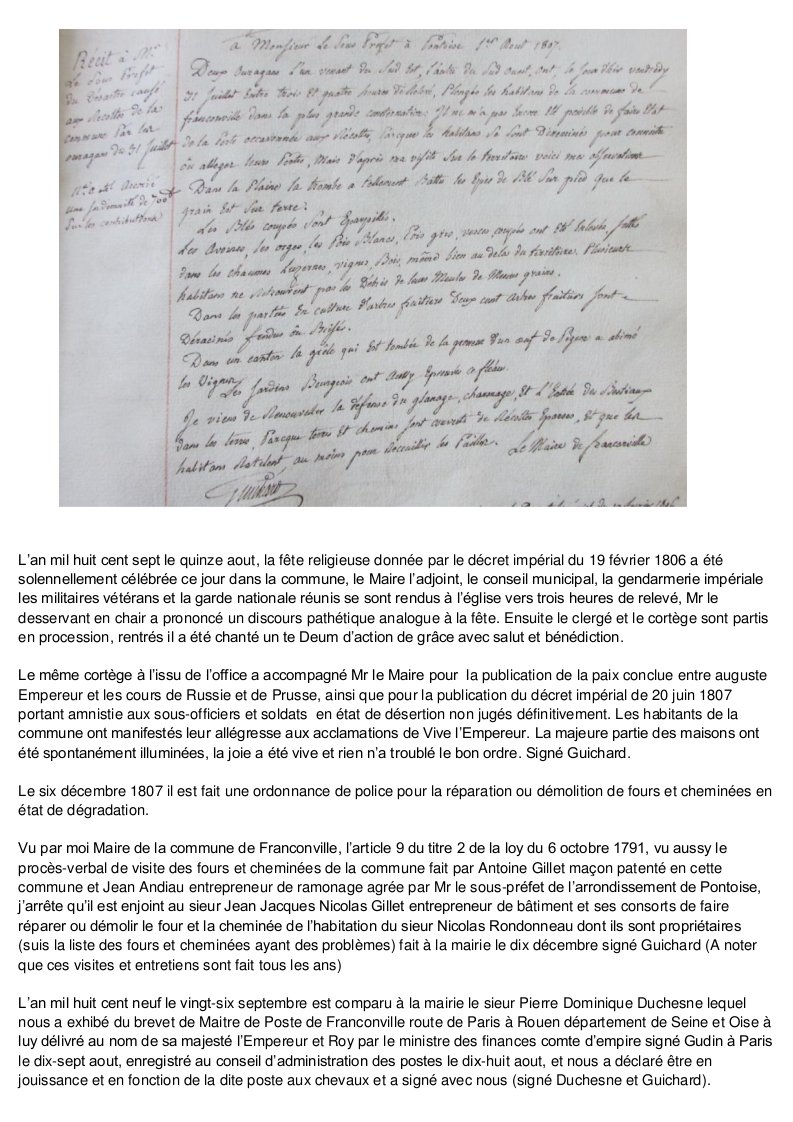 à Monsieur Le Sous Préfet à Pontoise 1er Aout 1807.
Récit à Mr
Le Sous Prefet
du Désastre causé
aux Récoltes de la
commune Par les
ouragans du 31 Juillet
une Indemnité de 700
Sur les contributions
Deux Ouragans l'un venant du Sud Est, l'autre du Sud Ouest, ont, le jour d'hier vendredy
31 Juillet Entre trois et quatre heures de Relevé, Plongés les habitans de la commune de
franconville dans la plus grande consternation. Il ne m'a pas Encore Eté possible de faire Etat
de la Perte occasionnée aux Récoltes, Parceque les habitans Se Sont Disséminés pour connoitre
ou alleger leurs Pertes, Mais d'après ma visite Sur le territoire voici mes observations
Dans la Plaine la trombe a tellement Battu les Epes de Blé Sur pied que le
grain Est Sur terre.
Les Blés coupés Sont Eparpillés.
Les Avoines, les orges, les Pois Blancs, Pois gris, vesces, coupés ont Eté
dans les chaumes Luzernes, vignes, Bois, même bien au delas du territoire. Plusieurs
habitans ne Retrouvent pas les Débris de leurs Meules de Menus grains.
Dans les parties En culture d'arbres fruitiers Deux cent Arbres fruitiers Sont
Déracinés fendus ou Brisés.
Dans un canton la grêle qui Est tombée de la grosseur d'un œuf de Pigeon a abimé
les Vignes.
Les Jardins Bourgeois ont Aussy Eprouvés ce fléau.
Je viens de Renouveller la défense du glanage, chaumage, Et l'Entrée des Bestiaux
dans les terres, Parceque terres Et chemins Sont couverts de Récoltes Eparses, Et que les
habitans Ratelent, au moins pour Receuillir les Pailles.
Le Maire de franconville
Guichard
L'an mil huit cent sept le quinze aout, la fête religieuse donnée par le décret impérial du 19 février 1806 a été
solennellement célébrée ce jour dans la commune, le Maire l'adjoint, le conseil municipal, la gendarmerie impériale
les militaires vétérans et la garde nationale réunis se sont rendus à l'église vers trois heures de relevé, Mr le
desservant en chair a prononcé un discours pathétique analogue à la fête. Ensuite le clergé et le cortège sont partis
en procession, rentrés il a été chanté un te Deum d'action de grâce avec salut et bénédiction.
Le même cortège à l'issu de l'office a accompagné Mr le Maire pour  la publication de la paix conclue entre auguste
Empereur et les cours de Russie et de Prusse, ainsi que pour la publication du décret impérial de 20 juin 1807
portant amnistie aux sous-officiers et soldats  en état de désertion non jugés définitivement. Les habitants de la
commune ont manifestés leur allégresse aux acclamations de Vive l'Empereur. La majeure partie des maisons ont
été spontanément illuminées, la joie a été vive et rien n'a troublé le bon ordre. Signé Guichard.
Le six décembre 1807 il est fait une ordonnance de police pour la réparation ou démolition de fours et cheminées en
état de dégradation.
Vu par moi Maire de la commune de Franconville, l'article 9 du titre 2 de la loy du 6 octobre 1791, vu aussy le
procès-verbal de visite des fours et cheminées de la commune fait par Antoine Gillet maçon patenté en cette
commune et Jean Andiau entrepreneur de ramonage agrée par Mr le sous-préfet de l'arrondissement de Pontoise,
j'arrête qu'il est enjoint au sieur Jean Jacques Nicolas Gillet entrepreneur de bâtiment et ses consorts de faire
réparer ou démolir le four et la cheminée de l'habitation du sieur Nicolas Rondonneau dont ils sont propriétaires
(suis la liste des fours et cheminées ayant des problèmes) fait à la mairie le dix décembre signé Guichard (A noter
que ces visites et entretiens sont fait tous les ans)
L'an mil huit cent neuf le vingt-six septembre est comparu à la mairie le sieur Pierre Dominique Duchesne lequel
nous a exhibé du brevet de Maitre de Poste de Franconville route de Paris à Rouen département de Seine et Oise à
luy délivré au nom de sa majesté l'Empereur et Roy par le ministre des finances comte d'empire signé Gudin à Paris
le dix-sept aout, enregistré au conseil d'administration des postes le dix-huit aout, et nous a déclaré être en
jouissance et en fonction de la dite poste aux chevaux et a signé avec nous (signé Duchesne et Guichard).